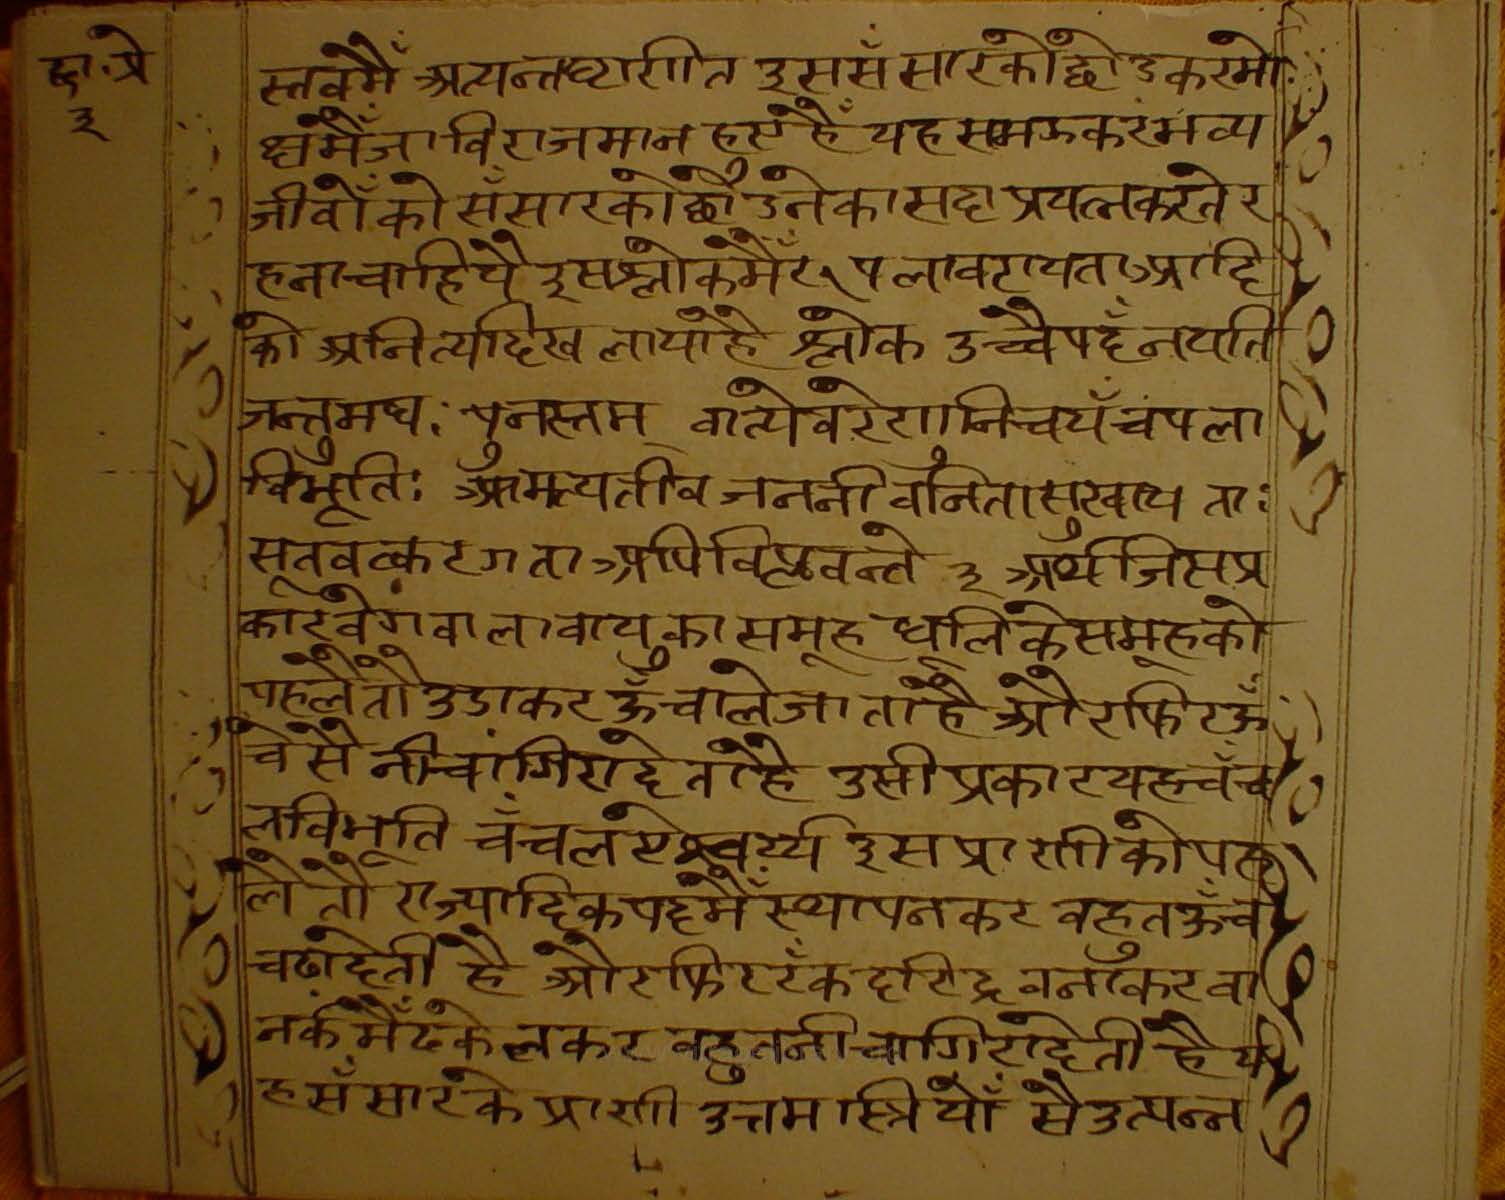 द्वा.प्रे
३
स्तवमैं अत्यन्तव्यागीत इससँसारकोछोडकरमो
क्षमैंजाविराजमान हुए हैं यहसमझकरभव्य
जीवोंको सँसारकोछोडनेकासदाप्रयत्नकरतेर
हनाचाहिये इसश्लोकमैंरूपलावण्यताआदि
को अनित्यदिखलायाहै श्लोक उच्चैपदँनयति
जन्तुमधः पुनस्तम् वात्येवरेणुनिचयँचपला
विभूतिः श्राम्यत्यतीव जननीवनितासुखाय ताः
सूतवत्करगता अपिविप्लवन्ते ३ अर्थजिसप्र
कारवेगवालावायुकासमूह धूलिकेसमूहको
पहलेतौउडाकरऊँचालेजाताहै औरफिरऊँ
चेसे नीचागिरादेताहै उसीप्रकारयहचँच
लविभूति चँचलऐश्वर्य्य इसप्राणीकोपह
लेतौ राज्यादिकपदमैंस्थापनकर बहुतऊँचा
चढादेती है औरफिररँकदरिद्रबनाकरवा
नर्कमैंढकेलकर बहुतनीचागिरादेती हैय
हसँसारके प्राणी उत्तमस्त्रियोँ सैउत्पन्न